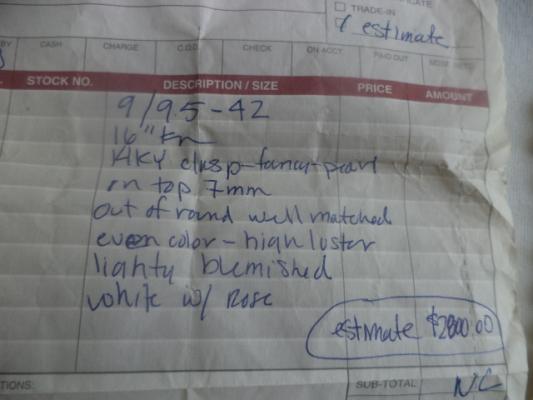 TRADE-IN
estimate
BY CASH CHARGE C.O.D. CHECK ON ACCT. PAID OUT
STOCK NO. DESCRIPTION / SIZE PRICE AMOUNT
9/9.5-42
16" kn
14KY clasp-fancy-pearl
on top 7mm
out of round well matched
even color - high luster
lighty blemished
white w/ Rose
estimate $2800.00
TIONS: SUB-TOTAL NC